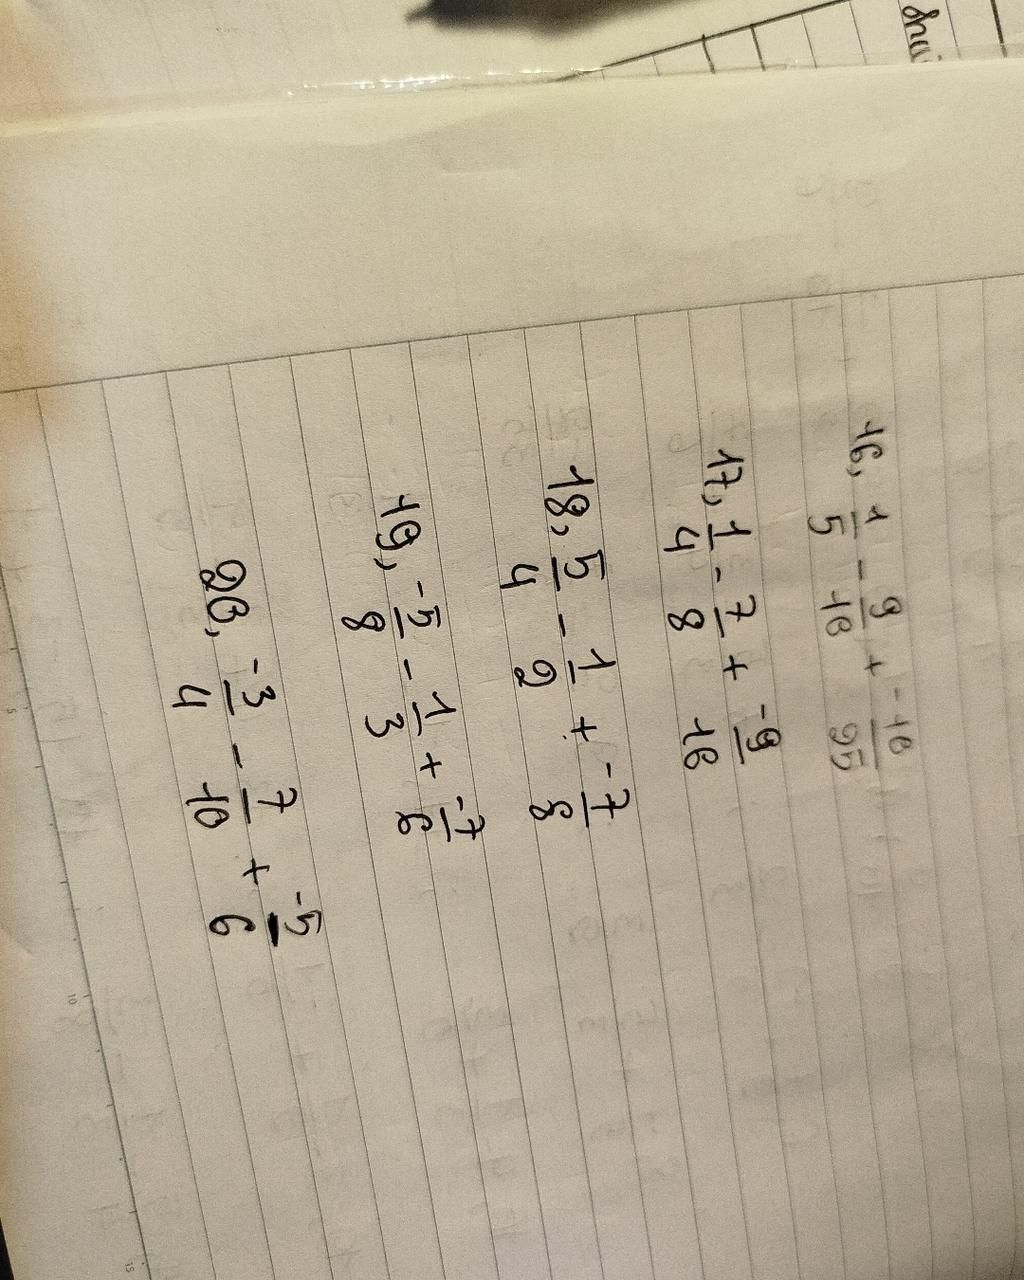 16, 1/5 - 9/10 + -16/25
17, 1/4 - 7/8 + -9/16
18, 5/4 - 1/2 + -7/8
19, -5/8 - 1/3 + -7/6
20, -3/4 - 7/10 + -5/6
5
10
15